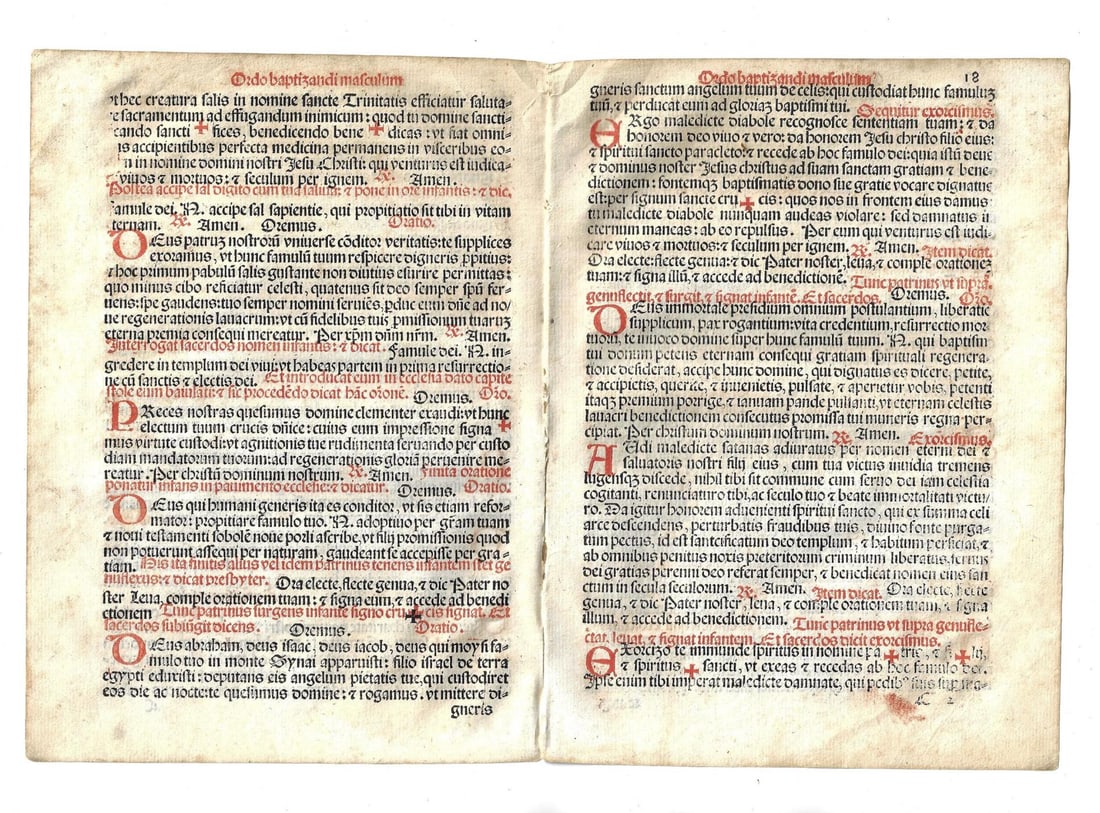 Ordo baptizandi masculum
vt hec creatura salis in nomine sancte Trinitatis efficiatur saluta-
re sacramentum ad effugandum inimicum: quod tu domine sancti-
cando sancti ✠ fices, benedicendo bene ✠ dicas: vt fiat omni-
is accipientibus perfecta medicina permanens in visceribus eo-
in nomine domini nostri Jesu Christi: qui venturus est iudica-
viuos & mortuos: & seculum per ignem. ℟. Amen.
Postea accipe sal digito cum tua saliua: & pone in ore infantis: & dic.
famule dei. N. accipe sal sapientie, qui propitiatio sit tibi in vitam
ternam. ℟. Amen. Oremus. Oratio.
DEus patrum nostrorū vniuerse cōditor veritatis: te supplices
exoramus, vt hunc famulū tuum respicere digneris ꝓpitius:
& hoc primum pabulū salis gustante non diutius esurire permittas:
quo minus cibo reficiatur celesti, quatenus sit deo semper spū fer-
uens: spe gaudens: tuo semper nomini seruiēs. ꝑduc eum dn̄e ad no-
ue regenerationis lauacrum: vt cū fidelibus tuis ꝓmissionum tuarum
eterna premia consequi mereatur. Per xp̄m dn̄m nr̄m. ℟. Amen.
Interrogat sacerdos nomen infantis: & dicat. Famule dei. N. in-
gredere in templum dei viui: vt habeas partem in prima resurrectio-
ne cū sanctis & electis dei. Et introducat eum in ecclesia dato capite
stole eum baiulāti: & sic procedēdo dicat hāc orōne. Oremus. Oro.
PReces nostras quesumus domine clementer exaudi: vt hunc
electum tuum crucis dn̄ice: cuius eum impressione signa ✠
mus virtute custodi: vt agnitionis tue rudimenta seruando per custo
diam mandatorum tuorum: ad regenerationis gloriā peruenire me-
reatur. Per christū dominum nostrum. ℟. Amen. Finita oratione
ponatur infans in pauimento ecclesie: & dicatur. Oremus. Oratio.
DEus qui humani generis ita es conditor, vt sis etiam refor-
mator: propitiare famulo tuo. N. adoptiuo per grām tuam
& noui testamenti sobolē noue ꝓoli ascribe, vt filij promissionis quod
non potuerunt assequi per naturam, gaudeant se accepisse per gra-
tiam. His ita finitis alius vel idem patrinus tenens infantem stet ge
nuflexus: & dicat presbyter. Ora electe, flecte genua, & dic Pater no
ster Leua, comple orationem tuam: & signa eum, & accede ad benedi
ctionem Tunc patrinus surgens infantē signo cru ✠ cis signat. Et
sacerdos subiūgit dicens. Oremus. Oratio.
DEus abraham, deus isaac, deus iacob, deus qui moysi fa-
mulo tuo in monte Synai apparuisti: filio israel de terra
egypti eduxisti: deputans eis angelum pietatis tue, qui custodiret
eos die ac nocte: te quesumus domine: & rogamus. vt mittere di-
gneris
Ordo baptizandi masculum 18
gneris sanctum angelum tuum de celis: qui custodiat hunc famulum
tuū, & perducat eum ad gloriam baptismi tui. Sequitur exorcismus.
ERgo maledicte diabole recognosce sententiam tuam: & da
honorem deo viuo & vero: da honorem Jesu christo filio eius:
& spiritui sancto paracleto: & recede ab hoc famulo dei: quia istū deus
& dominus noster Jesus christus ad suam sanctam gratiam & bene
dictionem: fontemque baptismatis dono sue gratie vocare dignatus
est: per signum sancte cru ✠ cis: quos nos in frontem eius damus
tu maledicte diabole nunquam audeas violare: sed damnatus in
eternum maneas: ab eo repulsus. Per eum qui venturus est iudi-
care viuos & mortuos: & seculum per ignem. ℟. Amen. Item dicat.
Ora electe: flecte genua: & dic Pater noster, leua, & comple orationem
tuam: & signa illū, & accede ad benedictionē. Tunc patrinus vt supra.
genuflectit, & surgit, & signat infantē. Et sacerdos. Oremus. Oro.
DEus immortale presidium omnium postulantium, liberatio
supplicum, pax rogantium: vita credentium, resurrectio mor
tuorū, te inuoco domine super hunc famulū tuum. N. qui baptism
tui donum petens eternam consequi gratiam spirituali regenera-
tione desiderat, accipe hunc domine, qui dignatus es dicere, petite,
& accipietis, querite, & inuenietis, pulsate, & aperietur vobis, petenti
itaque premium porrige, & ianuam pande pulsanti, vt eternam celestis
lauacri benedictionem consecutus promissa tui muneris regna per-
cipiat. Per christum dominum nostrum. ℟. Amen. Exorcismus.
AUdi maledicte satanas adiuratus per nomen eterni dei &
saluatoris nostri filij eius, cum tua victus inuidia tremens
lugensque discede, nihil tibi sit commune cum seruo dei iam celestia
cogitanti, renunciaturo tibi, ac seculo tuo & beate immortalitati victu-
ro. Da igitur honorem aduenienti spiritui sancto, qui ex summa celi
arce descendens, perturbatis fraudibus tuis, diuino fonte purga-
tum pectus, id est sanctificatum deo templum, & habitum perficiat, &
ab omnibus penitus noxis preteritorum criminum liberatus, seruus
dei gratias perenni deo referat semper, & benedicat nomen eius san
ctum in secula seculorum. ℟. Amen. Item dicat. Ora electe, flecte
genua, & dic Pater noster, leua, & comple orationem tuam, & signa
illum, & accede ad benedictionem. Tunc patrinus vt supra genufle-
ctat, leuat, & signat infantem. Et sacerdos dicit exorcismus.
EXorcizo te immunde spiritus in nomine pa ✠ tris, & fi ✠ lij,
& spiritus ✠ sancti, vt exeas & recedas ab hoc famulo dei.
Ipse enim tibi imperat maledicte damnate, qui pedibus suis supra